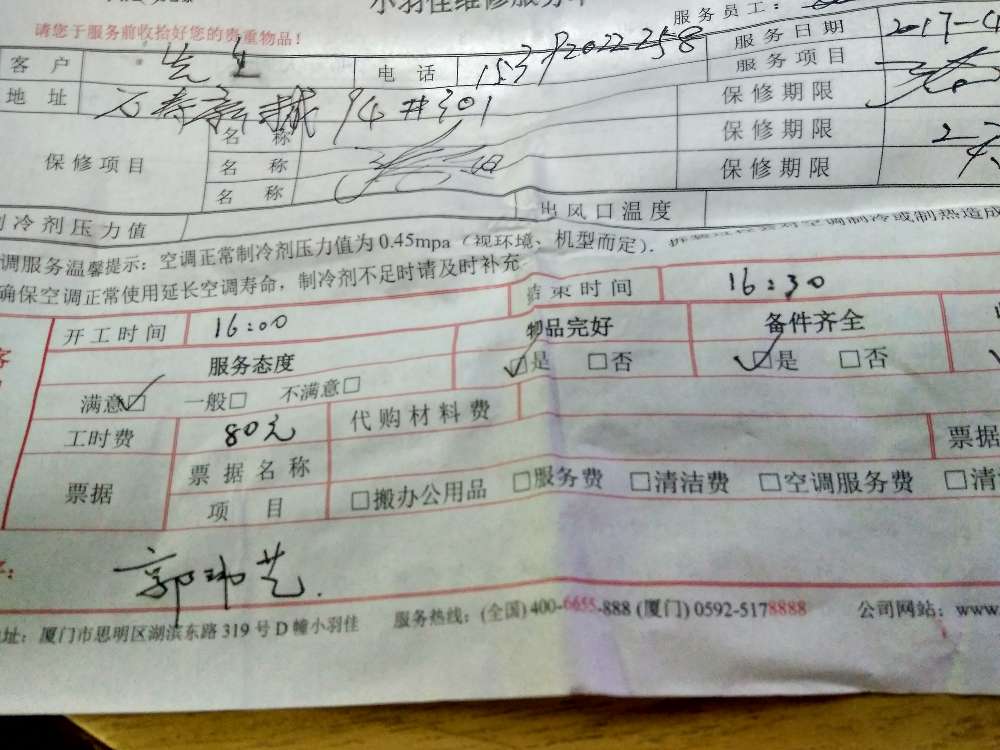 小羽佳维修服务
服务员工：
请您于服务前收拾好您的贵重物品！
服务日期 2017-4
客户 先生 电话
服务项目
地址 94#301
保修期限
保修项目 名称 保修期限
名称 保修期限
名称
制冷剂压力值 出风口温度
调服务温馨提示：空调正常制冷剂压力值为0.45mpa（视环境、机型而定）.
确保空调正常使用延长空调寿命，制冷剂不足时请及时补充
开工时间 16:00 结束时间 16:30
服务态度 物品完好 备件齐全
满意☑ 一般□ 不满意□ ☑是 □否 ☑是 □否
工时费 80元 代购材料费
票据 票据名称 票据
项目 □搬办公用品 □服务费 □清洁费 □空调服务费 □清
郭玮艺
址：厦门市思明区湖滨东路319号D幢小羽佳 服务热线：(全国)400-6655-888 (厦门) 0592-5178888 公司网站：www